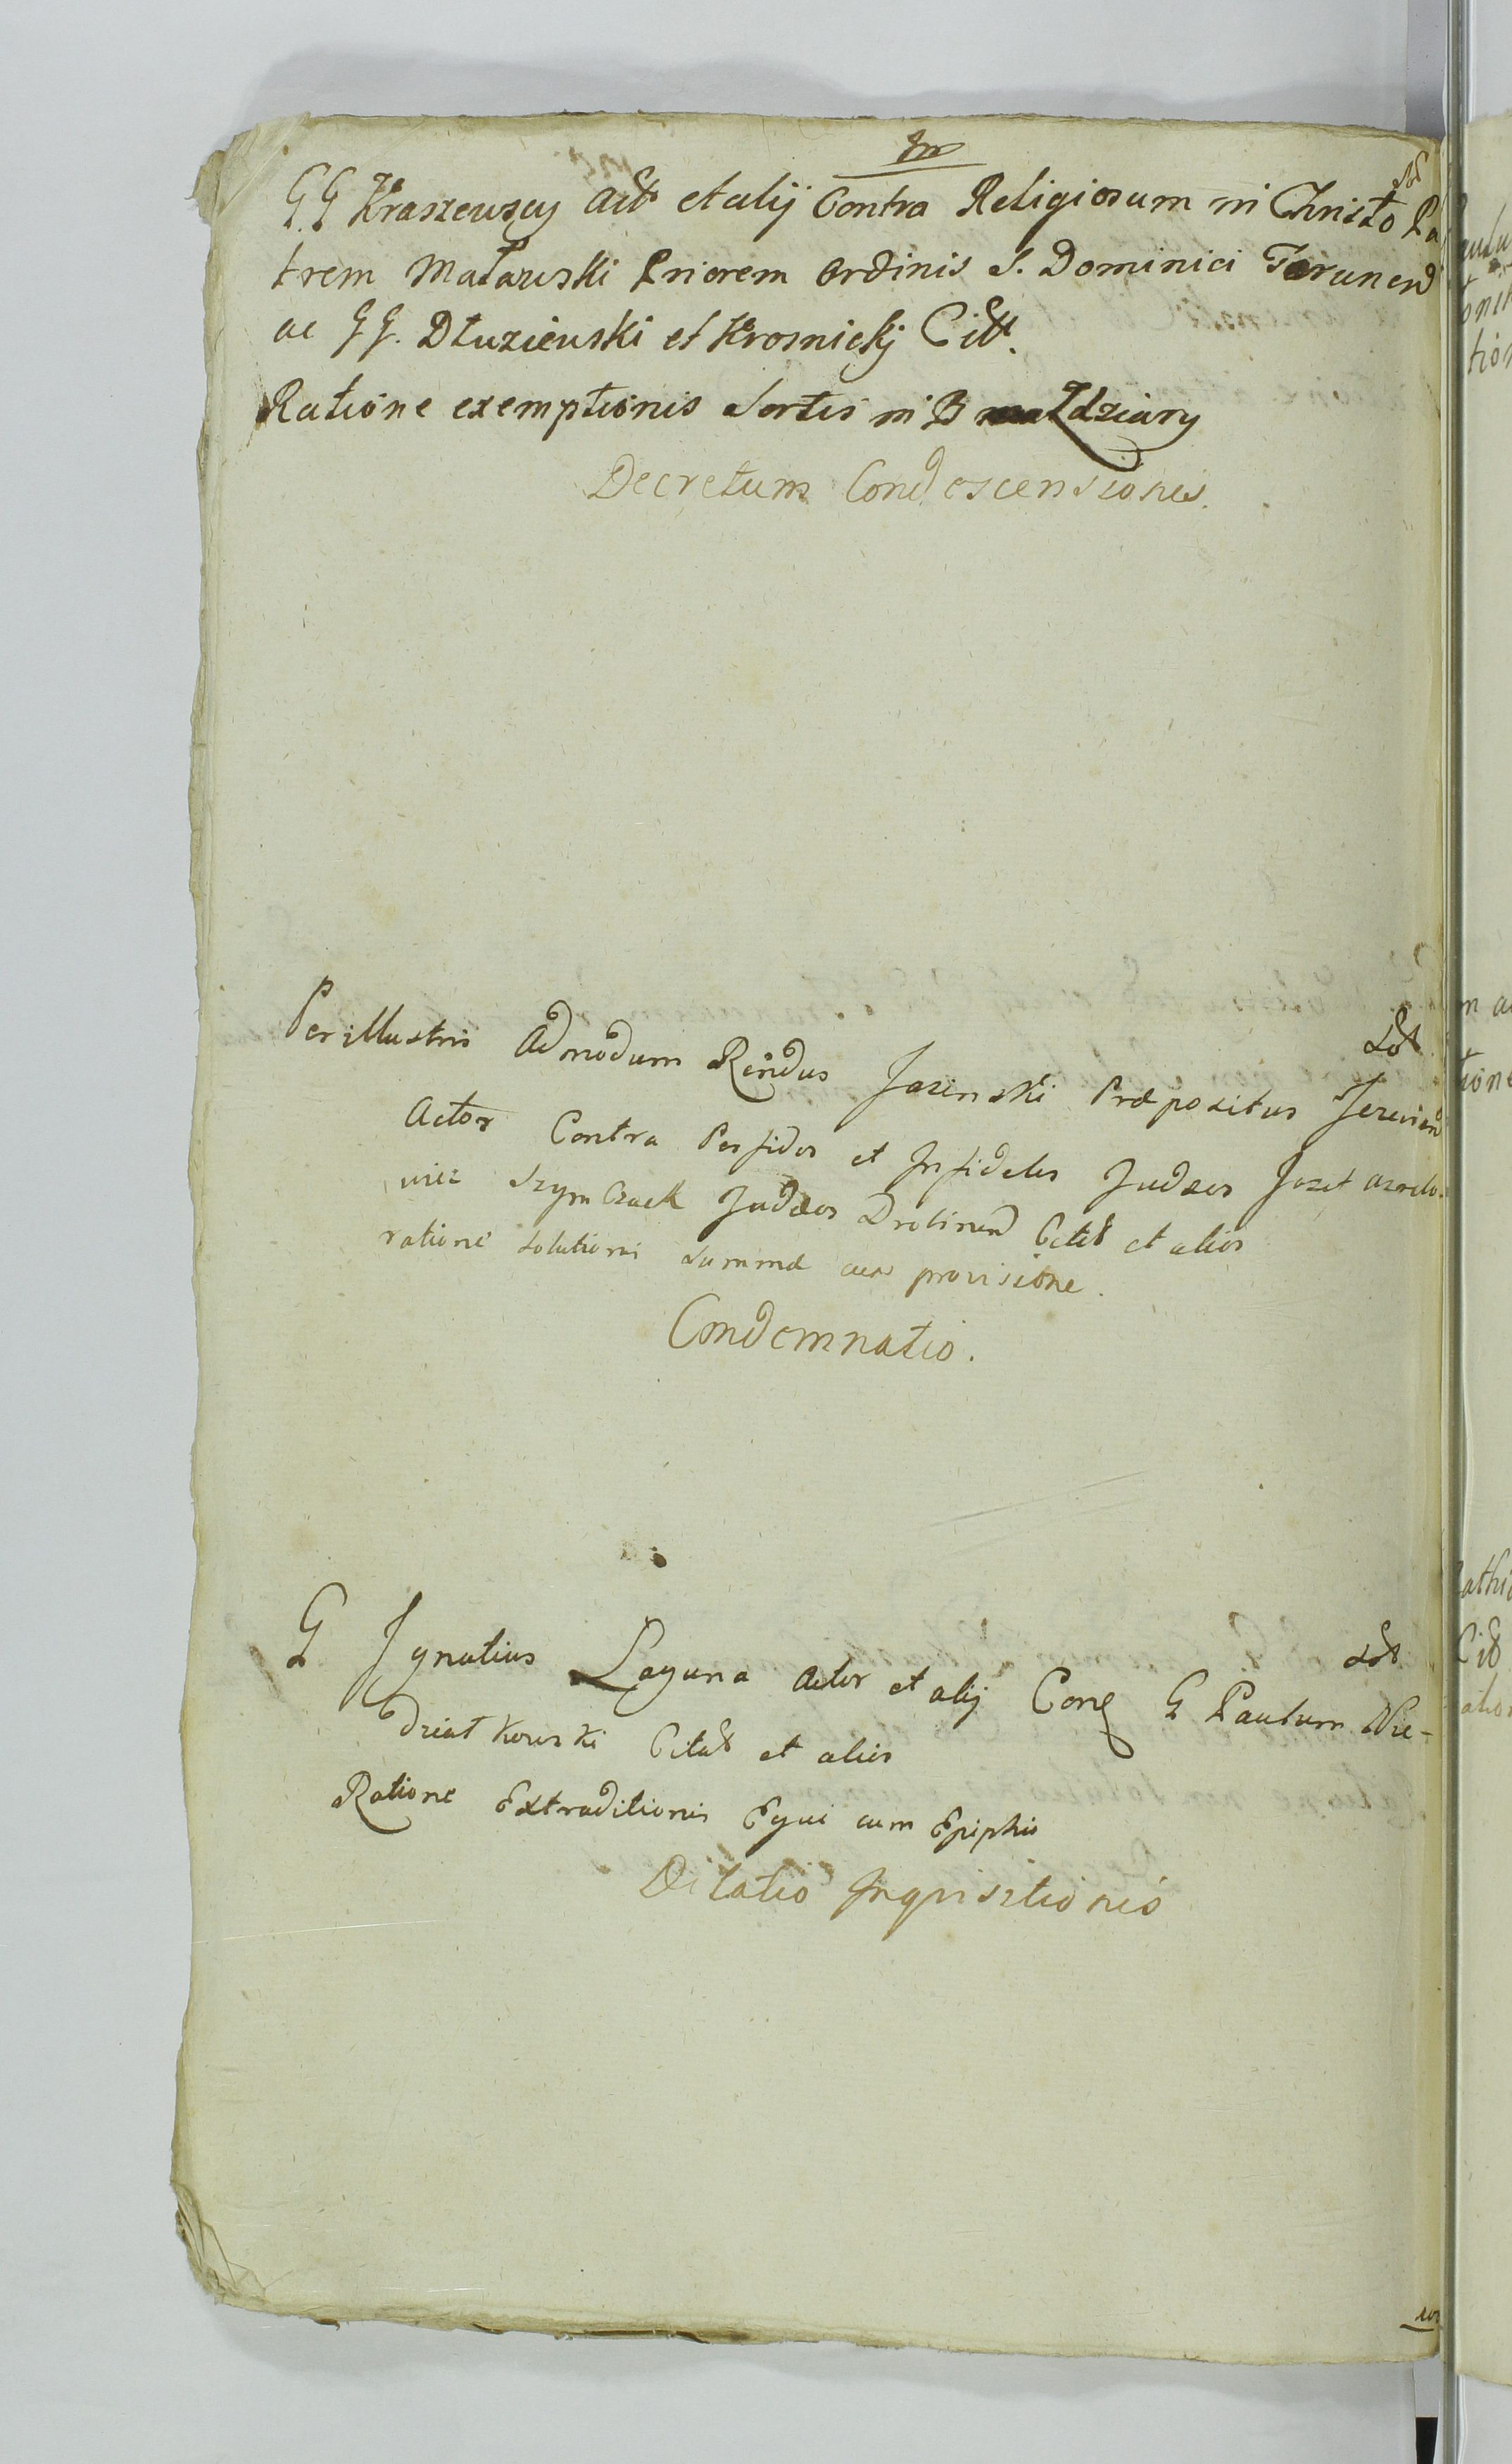 GG Kraszewscy Act et alij Contra Religiosum in Christo Pa
trem Matawski Priorem Ordinis S. Dominici Torunen
ac GG. Dłuziewski et Krosnickj Citt.
Ratione exemptionis Sortis in B Zdziary
Decretum Condescensionis.
Perillustris Admodum Rendus Jasinski Præpositus
Actor Contra Perfidos et Infideles Judæos Jozef
wicz Szymczack Judæos Drobinen Citt et alios
ratione solutionis Summæ cum provisione.
Condemnatio.
G Ignatius Laguna Actor et alij Con G Paulum Nie-
działkowski Citat et alios
Ratione Extraditionis Equi cum Epiphio
Dilatio Inquisitionis